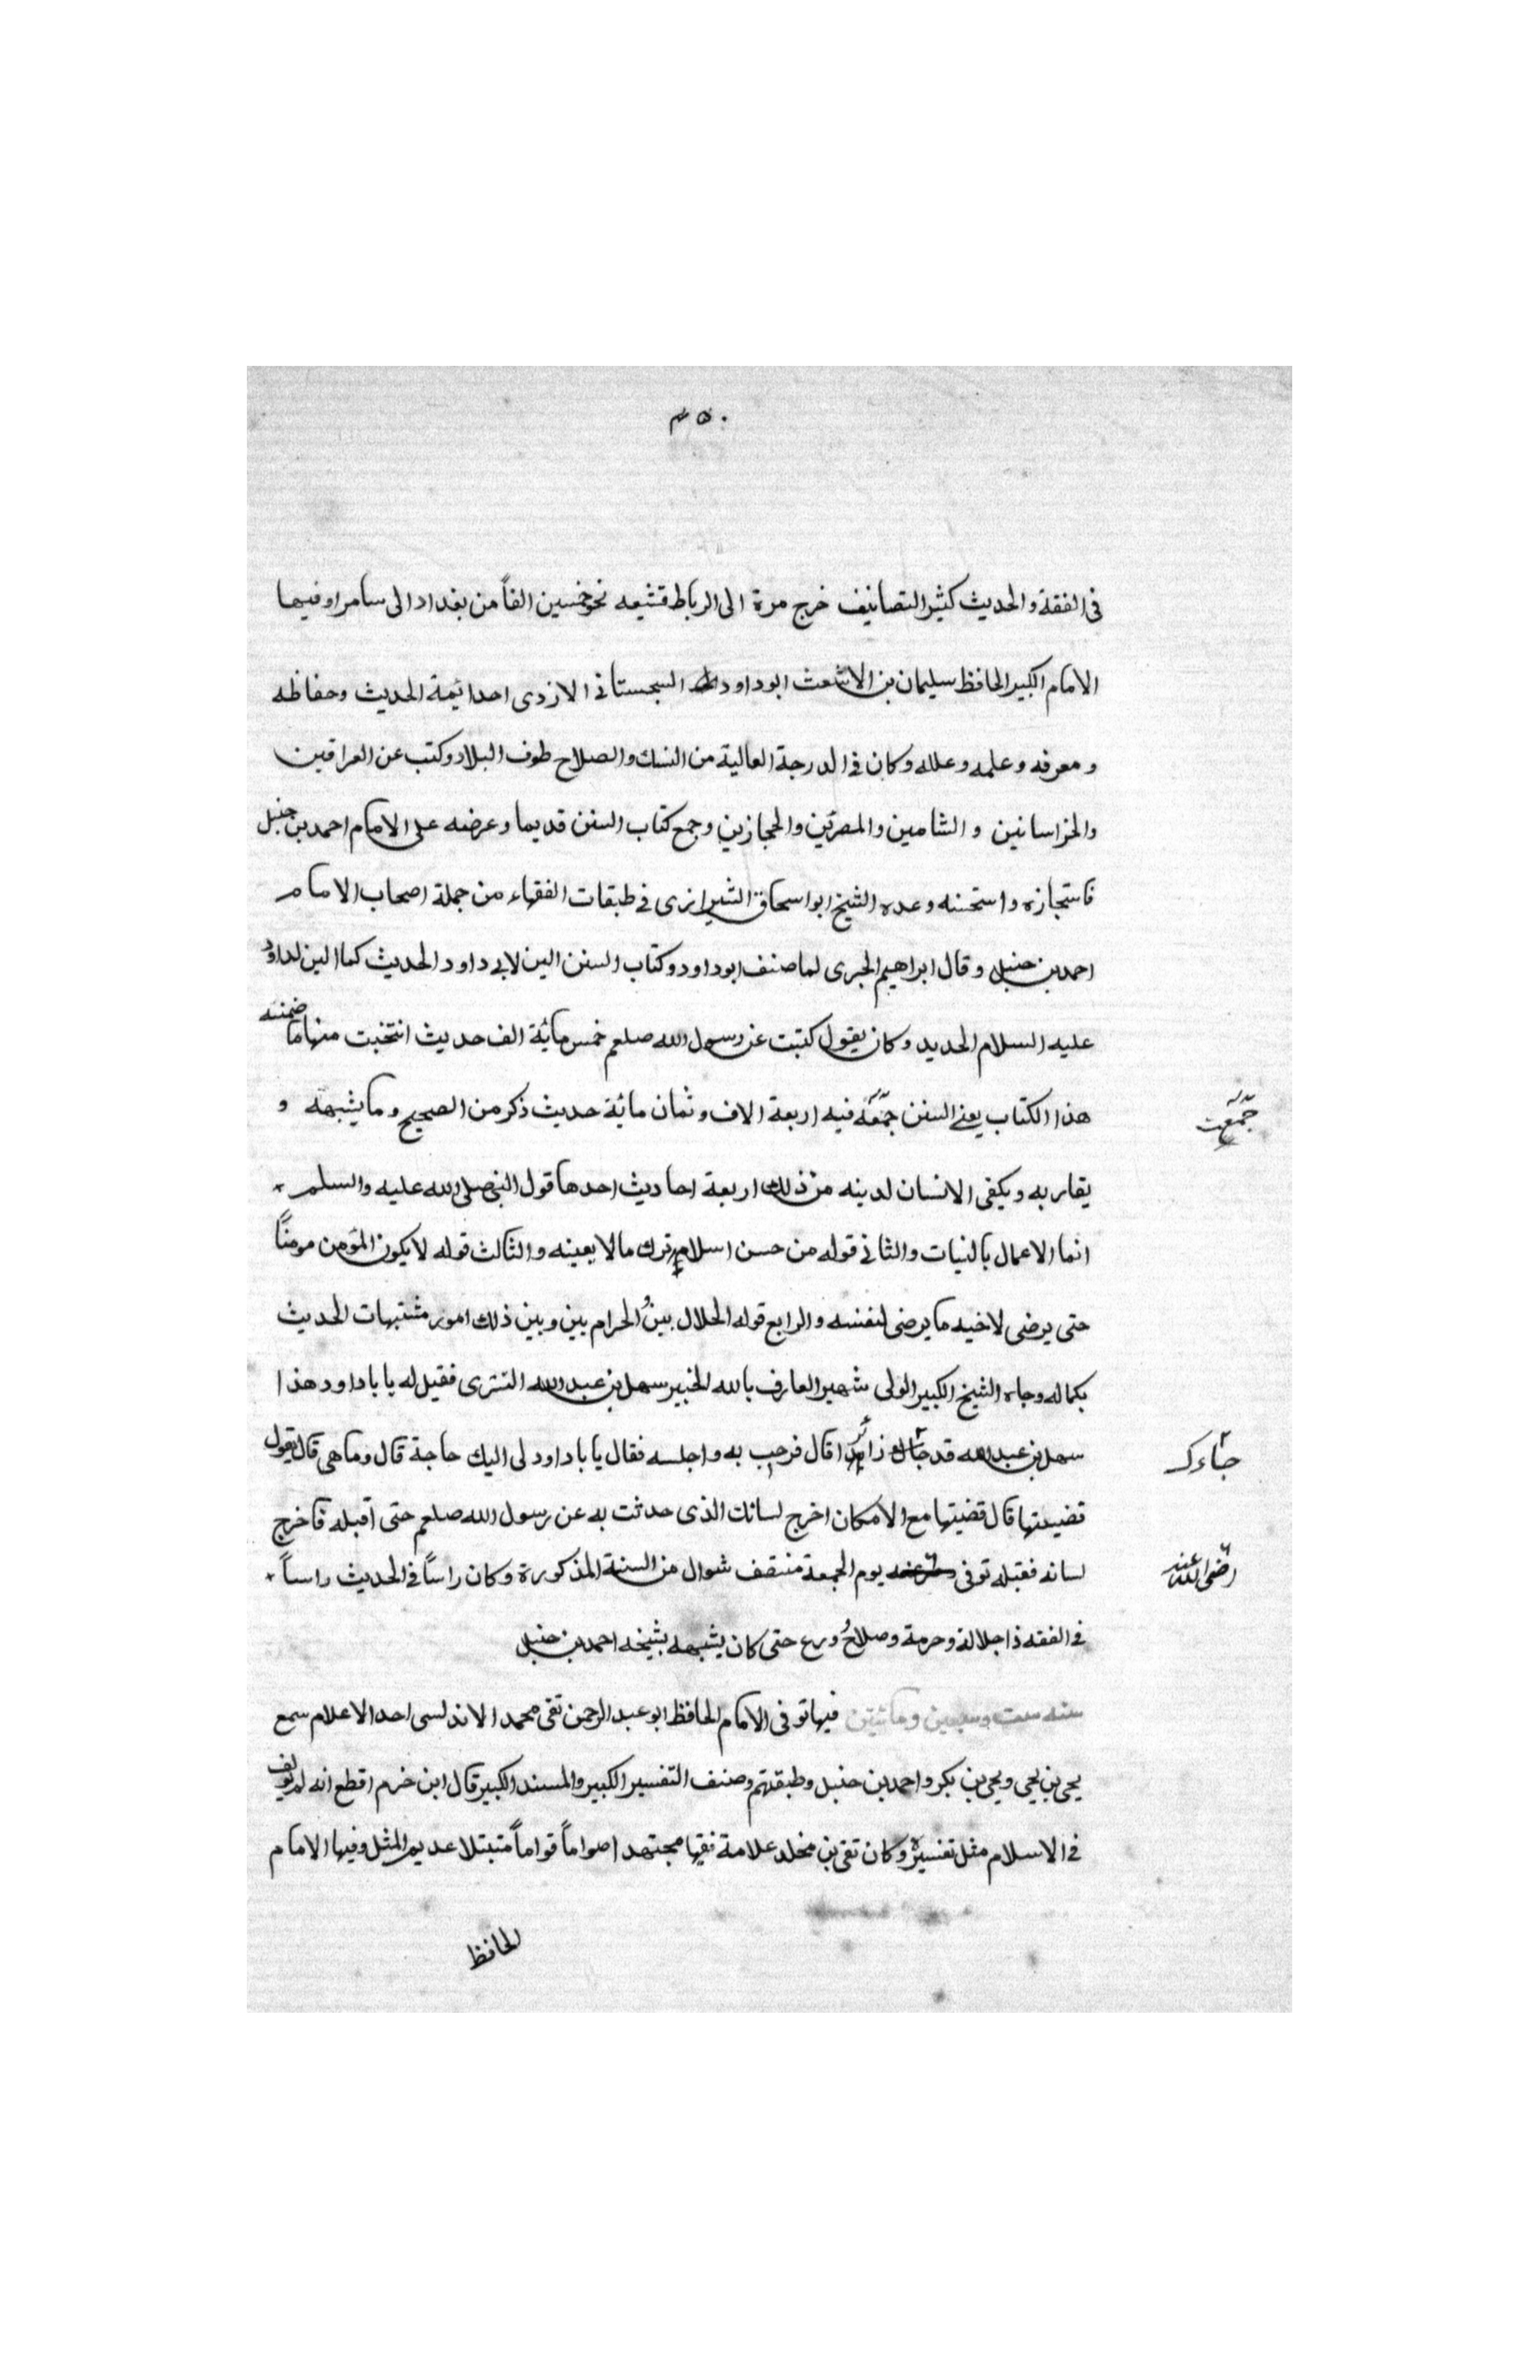 ٤٥٠
في الفقة والحديث كثير التصانيف خرج مرة الى الرباط فتشيعه نحو خمسين الفاً من بغداد الى سامرا وفيها
الامام الكبير الحافظ سليمان بن الاشعث ابو داود السجستاني الازدى احد ائمة الحديث وحفاظه
ومعرفه وعلمه وعلله وكان في الدرجة العالية من النسك والصلاح طوف البلاد وكتب عن العراقين
والخراسانين والشامين والمصريّين والحجازين وجمع كتاب السنن قديما وعرضه على الامام احمد بن حنبل
فاستجازه واستحسنه وعده الشيخ ابو اسحاق الشيرازى في طبقات الفقهاء من جملة اصحاب الامام
احمد بن حنبل وقال ابراهيم الحربى لما صنف ابو داود وكتاب السنن الين لابى داود الحديث كما الين لداؤد
عليه السلام الحديد وكان يقول كتبت عن رسول الله صلعم خمس مائة الف حديث انتخبت منها ما ضمنته
هذا الكتاب يعنى السنن جمّعَه فيه اربعة الاف وثمان مائة حديث ذكر من الصحيح وما يشبهه و
جمّعت
يقاربه ويكفى الانسان لدينه من ذلك اربعة احاديث احدها قول النبى صلى الله عليه والسلم
انما الاعمال بالنيات والثانى قوله من حسن اسلام ترك مالا يعينه والثالث قوله لا يكون المؤمن مومناً
حتى يرضى لاخيه ما يرضى لنفسه والرابع قوله الحلال بين والحرام بين وبين ذلك امور مشتبهات الحديث
بكماله وجاه الشيخ الكبير الولى شهير العارف بالله الخبير سهل بن عبد الله التسترى فقيل له يا با داود هذا
سهل بن عبد الله قد جاك زائرا قال فرحب به واجلسه فقال يا با داود لى اليك حاجة قال وما هى قال يقول
جاءك
قضيتها قال قضيتها مع الامكان اخرج لسانك الذى حدثت به عن رسول الله صلعم حتى أقبله فاخرج
لسانه فقبله توفى يوم الجمعة منتصف شوال من السنة المذكورة وكان راساً في الحديث راساً
رضى الله عنه
في الفقه ذا جلالة وحرمة وصلاح وورع حتى كان يشبهه بشيخه احمد بن حنبل
سنه ست وسبعين ومائتين فيها توفى الامام الحافظ ابو عبد الرحمن تقى محمد الاندلسى احد الاعلام سمع
يحيى بن يحيى ويحيى بن بكر واحمد بن حنبل وطبقتهم وصنف التفسير الكبير والمسند الكبير قال ابن خرم اقطع انه لم يولف
في الاسلام مثل تفسيره وكان تقى بن مخلد علامة فقيها مجتهدا صواماً قواماً متبتلا عديم المثل وفيها الامام
الحافظ